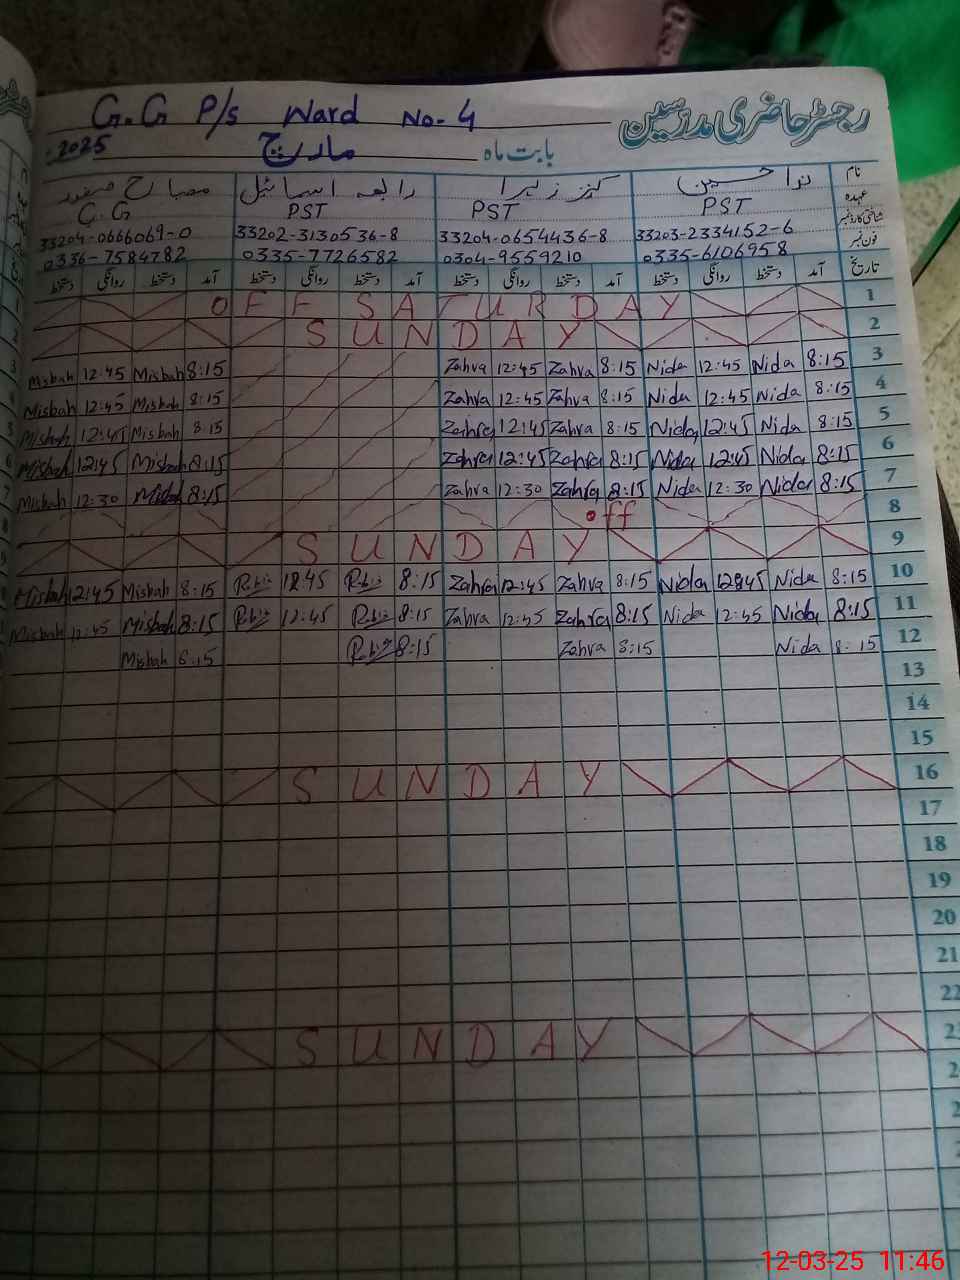 G.G P/s Ward No-4
رجسٹر حاضری مدرسین
2025 مارچ بابت ماہ
نام ندا حسین کنیز زہرا رابعہ اسماعیل مصباح
عہدہ PST PST PST C.G
شناختی کارڈ نمبر 33203-2334152-6 33204-0654436-8 33202-3130536-8 33204-0666069-0
فون نمبر 0335-6106958 0304-9559210 0335-7726582 0336-7584782
تاریخ آمد دستخط روانگی دستخط آمد دستخط روانگی دستخط آمد دستخط روانگی دستخط آمد دستخط روانگی دستخط
OFF SATURDAY 1
SUNDAY 2
Misbah 12:45 Misbah 8:15 Zahra 12:45 Zahra 8:15 Nida 12:45 Nida 8:15 3
Misbah 12:45 Misbah 8:15 Zahra 12:45 Zahra 8:15 Nida 12:45 Nida 8:15 4
Misbah 12:45 Misbah 8:15 Zahra 12:45 Zahra 8:15 Nida 12:45 Nida 8:15 5
Misbah 12:45 Misbah 8:15 Zahra 12:45 Zahra 8:15 Nida 12:45 Nida 8:15 6
Misbah 12:30 Misbah 8:15 Zahra 12:30 Zahra 8:15 Nida 12:30 Nida 8:15 7
off 8
SUNDAY 9
Misbah 12:45 Misbah 8:15 12:45 8:15 Zahra 12:45 Zahra 8:15 Nida 12:45 Nida 8:15 10
Misbah 12:45 Misbah 8:15 12:45 8:15 Zahra 12:45 Zahra 8:15 Nida 12:45 Nida 8:15 11
Misbah 8:15 8:15 Zahra 8:15 Nida 8:15 12
13
14
15
SUNDAY 16
17
18
19
20
21
22
SUNDAY 23
12-03-25 11:46